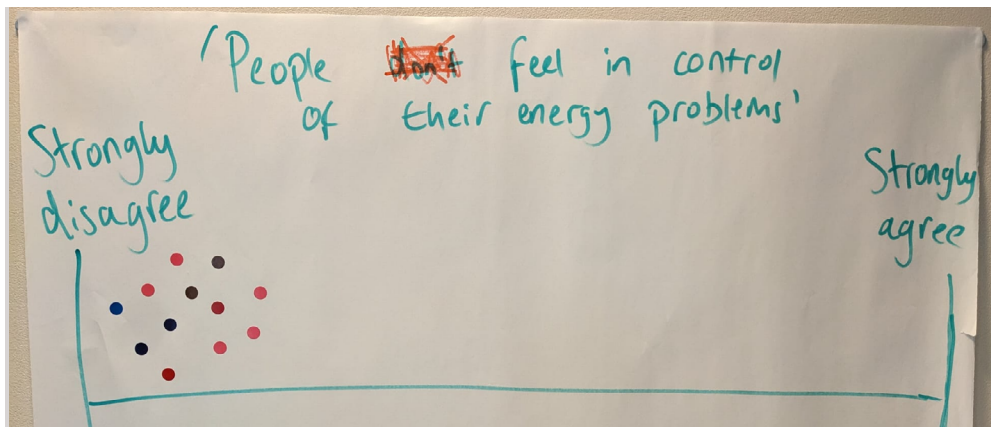 'People don't feel in control
of their energy problems'
Strongly
disagree
Strongly
agree